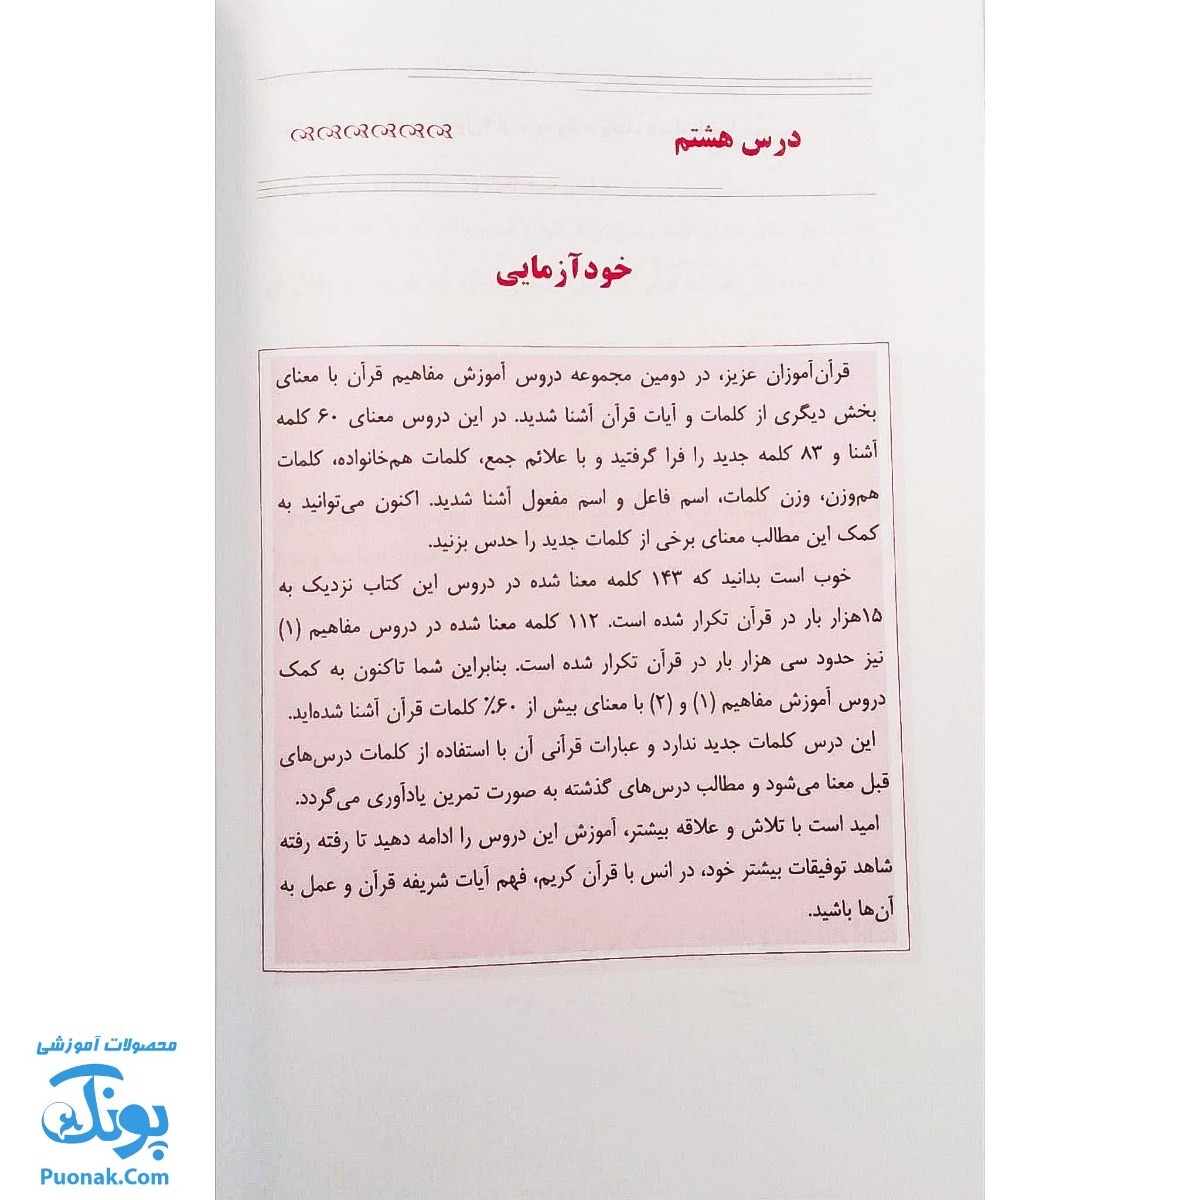 درس هشتم
خودآزمایی
قرآن‌آموزان عزیز، در دومین مجموعه دروس آموزش مفاهیم قرآن با معنای
بخش دیگری از کلمات و آیات قرآن آشنا شدید. در این دروس معنای ۶۰ کلمه
آشنا و ۸۳ کلمه جدید را فرا گرفتید و با علائم جمع، کلمات هم‌خانواده، کلمات
هم‌وزن، وزن کلمات، اسم فاعل و اسم مفعول آشنا شدید. اکنون می‌توانید به
کمک این مطالب معنای برخی از کلمات جدید را حدس بزنید.
خوب است بدانید که ۱۴۳ کلمه معنا شده در دروس این کتاب نزدیک به
۱۵هزار بار در قرآن تکرار شده است. ۱۱۲ کلمه معنا شده در دروس مفاهیم (۱)
نیز حدود سی هزار بار در قرآن تکرار شده است. بنابراین شما تاکنون به کمک
دروس آموزش مفاهیم (۱) و (۲) با معنای بیش از ۶۰٪ کلمات قرآن آشنا شده‌اید.
این درس کلمات جدید ندارد و عبارات قرآنی آن با استفاده از کلمات درس‌های
قبل معنا می‌شود و مطالب درس‌های گذشته به صورت تمرین یادآوری می‌گردد.
امید است با تلاش و علاقه بیشتر، آموزش این دروس را ادامه دهید تا رفته رفته
شاهد توفیقات بیشتر خود، در انس با قرآن کریم، فهم آیات شریفه قرآن و عمل به
آن‌ها باشید.
محصولات آموزشی
پونک
Puonak.Com